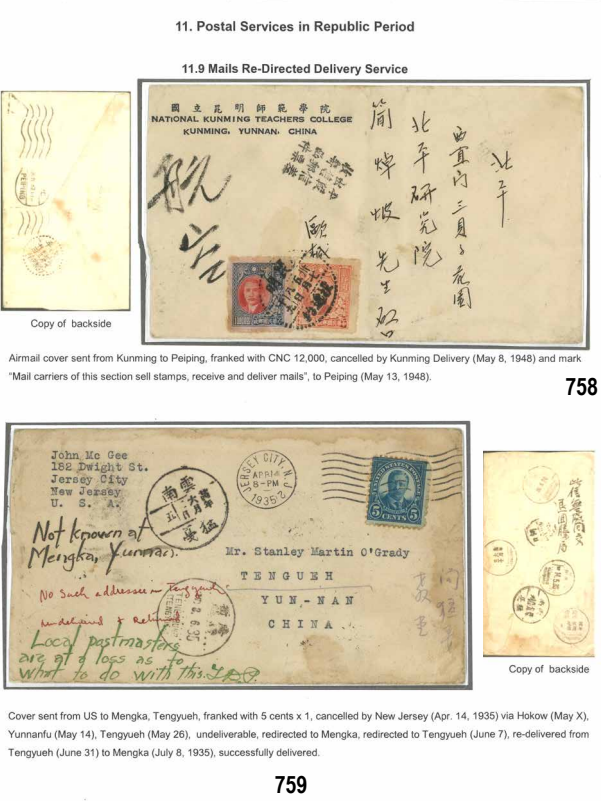 11. Postal Services in Republic Period
11.9 Mails Re-Directed Delivery Service
國立昆明師範學院
NATIONAL KUNMING TEACHERS COLLEGE
KUNMING, YUNNAN, CHINA
航空
北平
西直門三貝子花園
北平研究院
簡焯坡先生
歐械
Copy of backside
Airmail cover sent from Kunming to Peiping, franked with CNC 12,000, cancelled by Kunming Delivery (May 8, 1948) and mark
“Mail carriers of this section sell stamps, receive and deliver mails”, to Peiping (May 13, 1948).
758
John Mc Gee
182 Dwight St.
Jersey City
New Jersey
U. S. A.
雲南
猛
JERSEY CITY, N.J.
APR 14
8-PM
1935
UNITED STATES POSTAGE
5 CENTS 5
Not known at
Mengka, Yunnan.
Mr. Stanley Martin O'Grady
TENGUEH
YUN-NAN
CHINA
No Such addressee in Tengyueh
undelivered & Returned
TENGYUEH
Local postmasters
are at a loss as to
what to do with this.
Copy of backside
Cover sent from US to Mengka, Tengyueh, franked with 5 cents x 1, cancelled by New Jersey (Apr. 14, 1935) via Hokow (May X),
Yunnanfu (May 14), Tengyueh (May 26), undeliverable, redirected to Mengka, redirected to Tengyueh (June 7), re-delivered from
Tengyueh (June 31) to Mengka (July 8, 1935), successfully delivered.
759